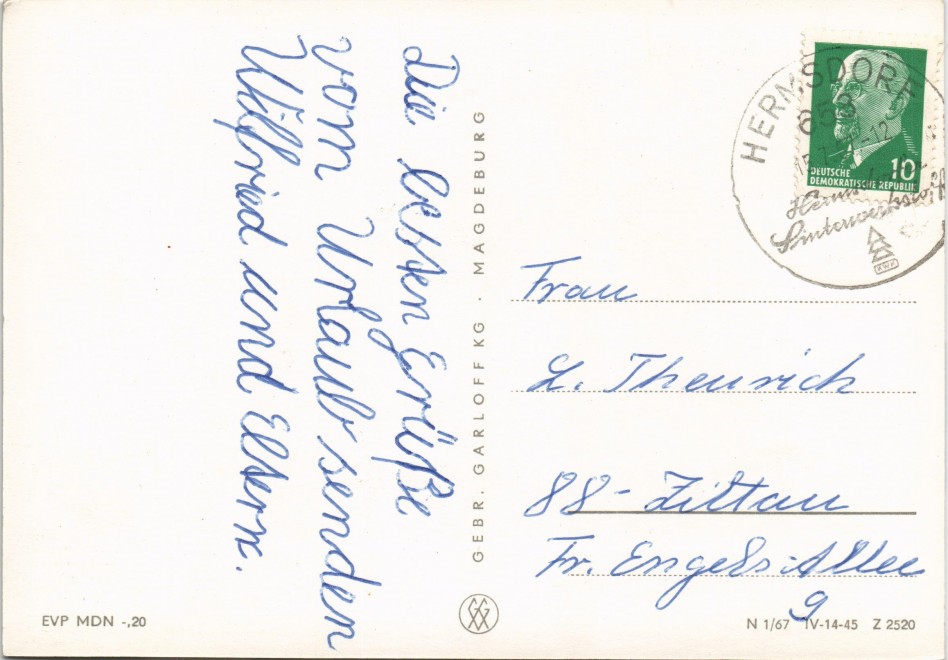 Die besten Grüße
vom Urlaub senden
Wilfried und Eltern.
GEBR. GARLOFF KG · MAGDEBURG
HERMSDORF
653
-12
10
DEUTSCHE
DEMOKRATISCHE REPUBLIK
Frau
L. Theurich
88-Zittau
Fr. Engels-Allee
9
EVP MDN -,20
N 1/67 IV-14-45 Z 2520